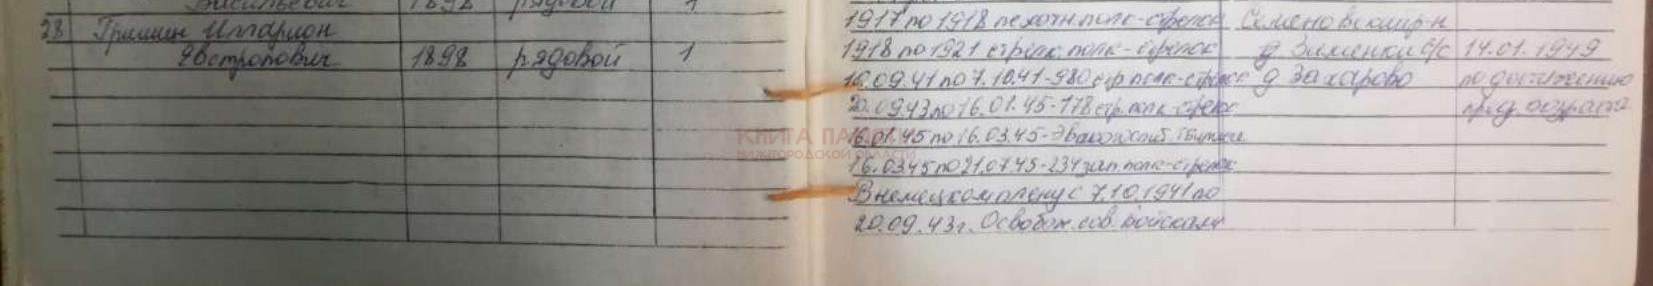 Васильевич 1898 рядовой 1
28 Гришин Илларион
Евстропович 1898 рядовой 1
1917 по 1918 пехотн. полк - стрелок Семеновский р-н
1918 по 1921 стрелк. полк - стрелок д Зименки с/с 14.01.1949
10.09.41 по 7.10.41 - 980 стр полк - стрелок д Захарово по достижению
20.09.43 по 16.01.45 - 178 стр. полк - стрелок пред. возраста
КНИГА ПАМЯТИ
НИЖЕГОРОДСКОЙ ОБЛАСТИ
16.01.45 по 16.03.45 - Эвакогоспит.
16.03.45 по 21.07.45 - 234 зап. полк - стрелок
В немецком плену с 7.10.1941 по
20.09.43 г. Освобож. сов. войсками